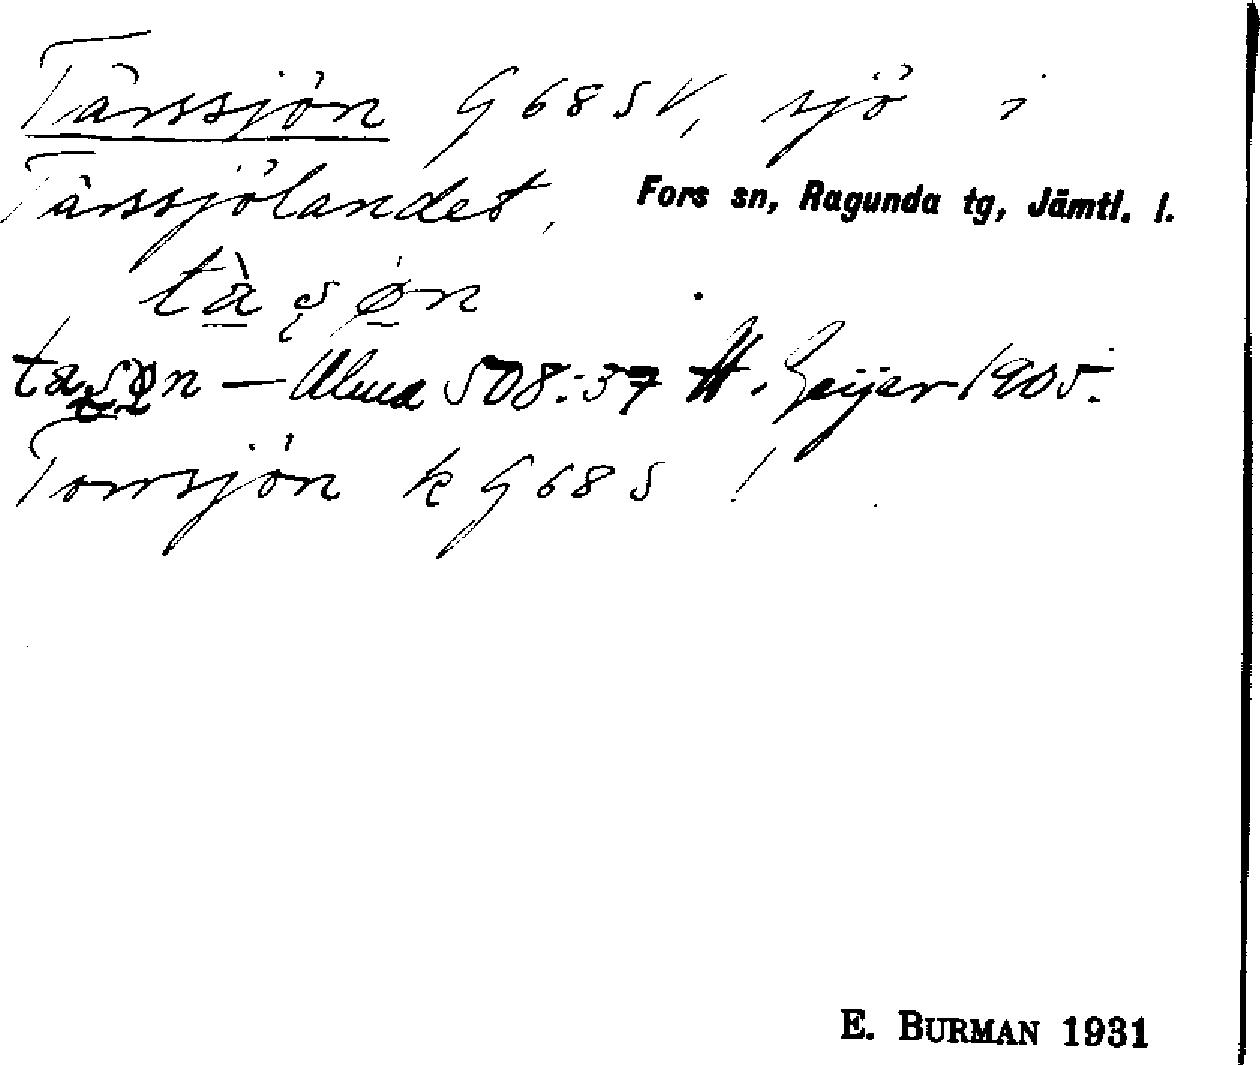 Tårssjön G68SV, sjö i
Tårssjölandet, Fors sn, Ragunda tg, Jämtl. l.
tàʂøn
taʂøn — Alund 508:37 H. Geijer 1905.
Torrsjön k G68S !
E. BURMAN 1931